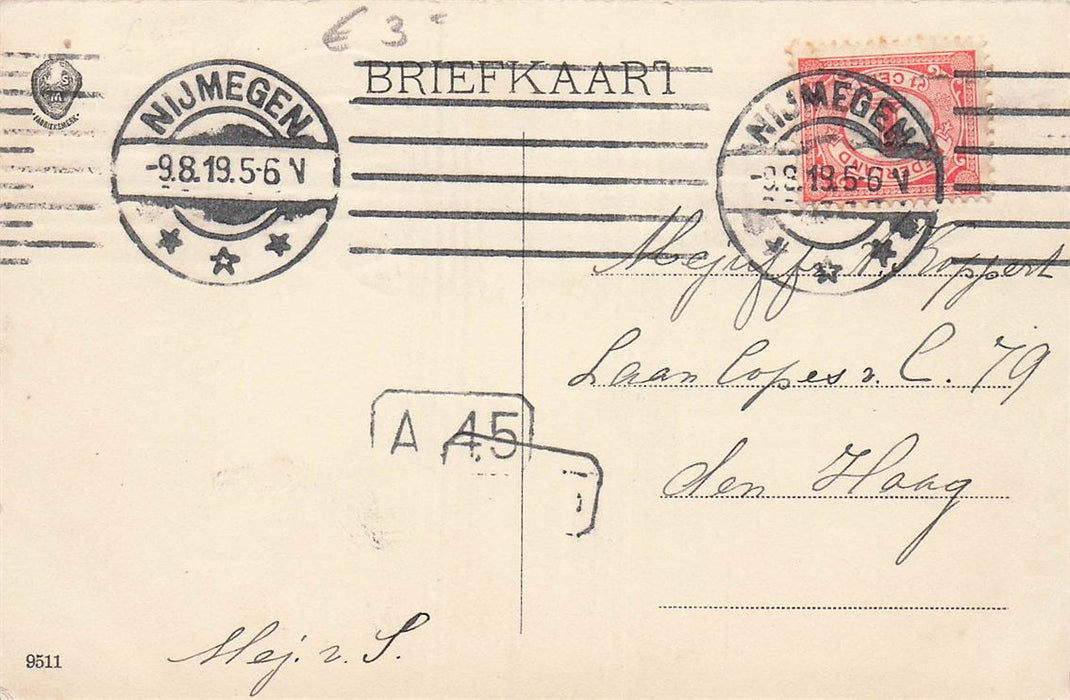 € 3 -
BRIEFKAART
FABRIEKSMERK
NIJMEGEN
-9.8.19.5-6 V
NIJMEGEN
-9.8.19.5-6 V
CENT
Mejuffr. v. Koppert
Laan Copes v. C. 79
den Haag
A 45
Mej. v. S.
9511